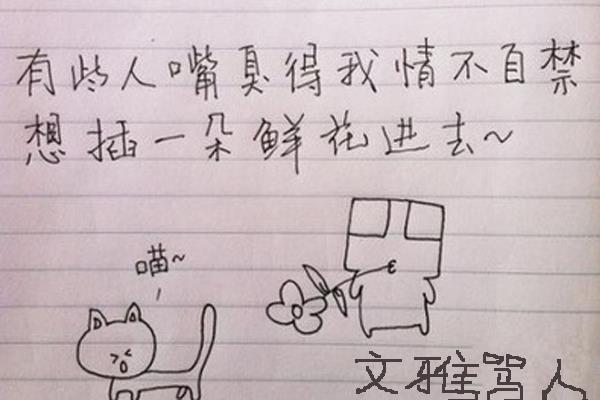 有些人嘴臭得我情不自禁
想插一朵鲜花进去~
喵~
文雅骂人